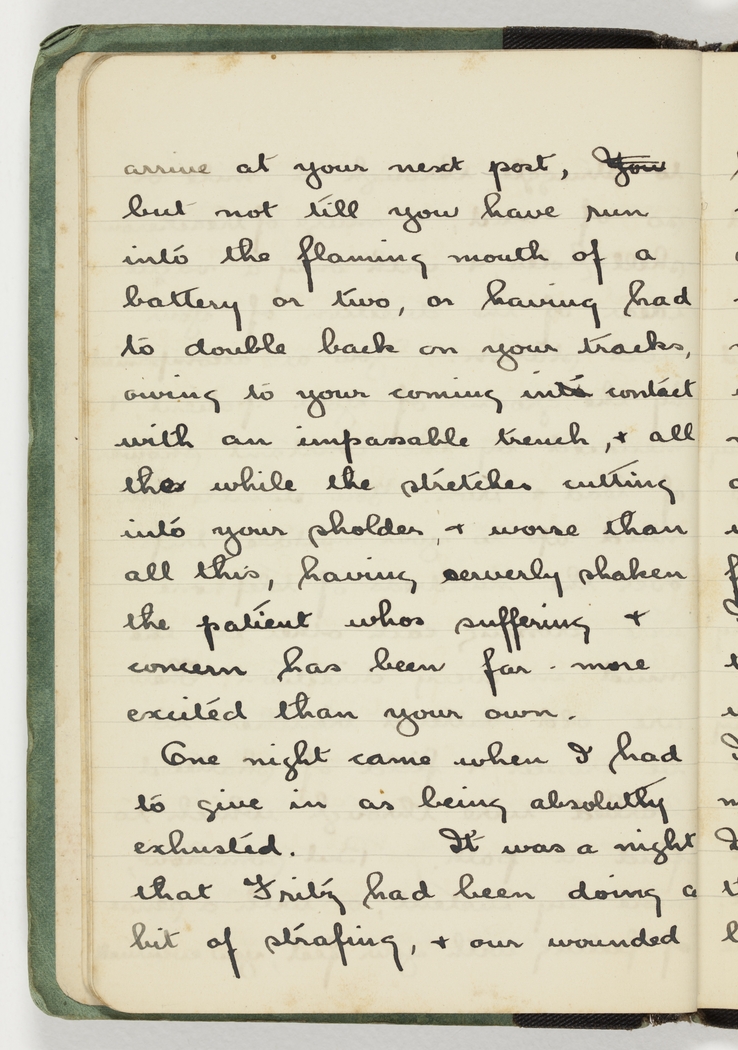 arrive at your next post, You
but not till you have run
into the flaming mouth of a
battery or two, or having had
to double back on your tracks,
owing to your coming into contact
with an impassable trench, + all
the while the stretcher cutting
into your sholder, + worse than
all this, having serverly shaken
the patient whos suffering +
concern has been far more
excited than your own.
One night came when I had
to give in as being absolutly
exhusted. It was a night
that Fritz had been doing a
bit of strafing, + our wounded